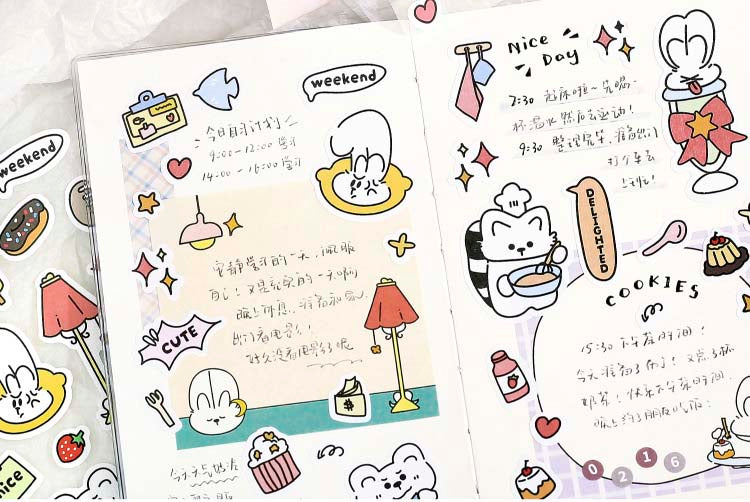 weekend
今日自习计划
9:00-12:00 学习
14:00-16:00 学习
安静学习的一天,佩服
自己!又是充实的一天啊
晚上休息,准备和家人
出门看电影!
好久没看电影了呢
CUTE
$
今天天气
Nice
Day
7:30 起床啦~先喝一
杯温水 然后去运动!
9:30 整理完毕,准备出门
打个车去
上班!
DELIGHTED
COOKIES
15:30 下午茶时间!
今天准备了 又点了杯
奶茶!快乐下午茶时间
晚上约了朋友吃饭
0216
weekend